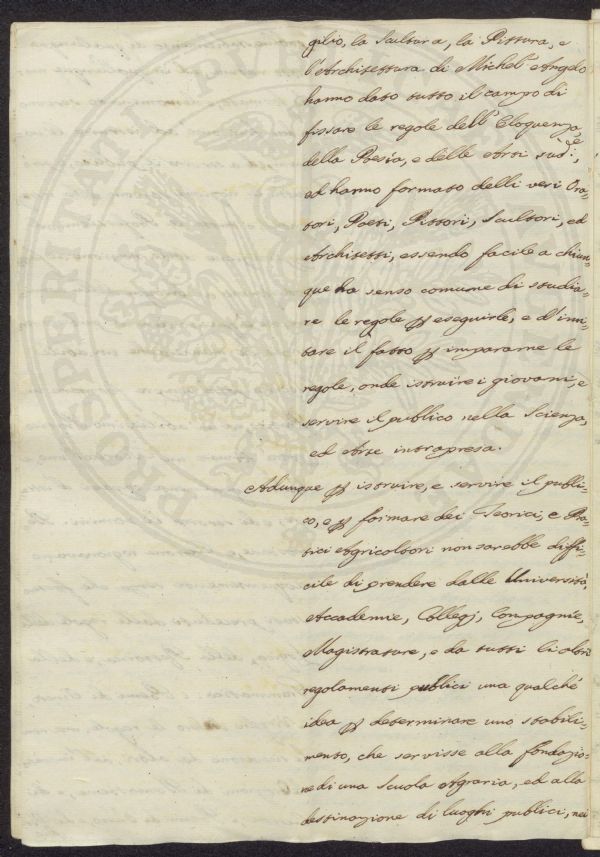 gilio, la Scultura, la Pittura, e
l'Architettura di Michel' Angelo
hanno dato tutto il campo di
fissare le regole dell' Eloquenza,
della Poesia, e delle Arti sud.e,
ed hanno formato delli veri Ora-
tori, Poeti, Pittori, Scultori, ed
Architetti, essendo facile a chiun-
que ha senso comune di studia-
re le regole p eseguirle, e d'imi-
tare il fatto p impararne le
regole, onde istruire i giovani, e
servire il publico nella Scienza,
ed Arte intrapresa.
Adunque p istruire, e servire il publi-
co, e p formare dei Teorici, e Pra-
tici Agricoltori non sarebbe diffi-
cile di prendere dalle Università,
Accademie, Collegj, Compagnie,
Magistrature, e da tutti li altri
regolamenti publici una qualché
idea p determinare uno stabili-
mento, che servisse alla fondazio-
ne di una Scuola Agraria, ed alla
destinazione di luoghi publici, nei
PROSPERITATI PUBLICAE